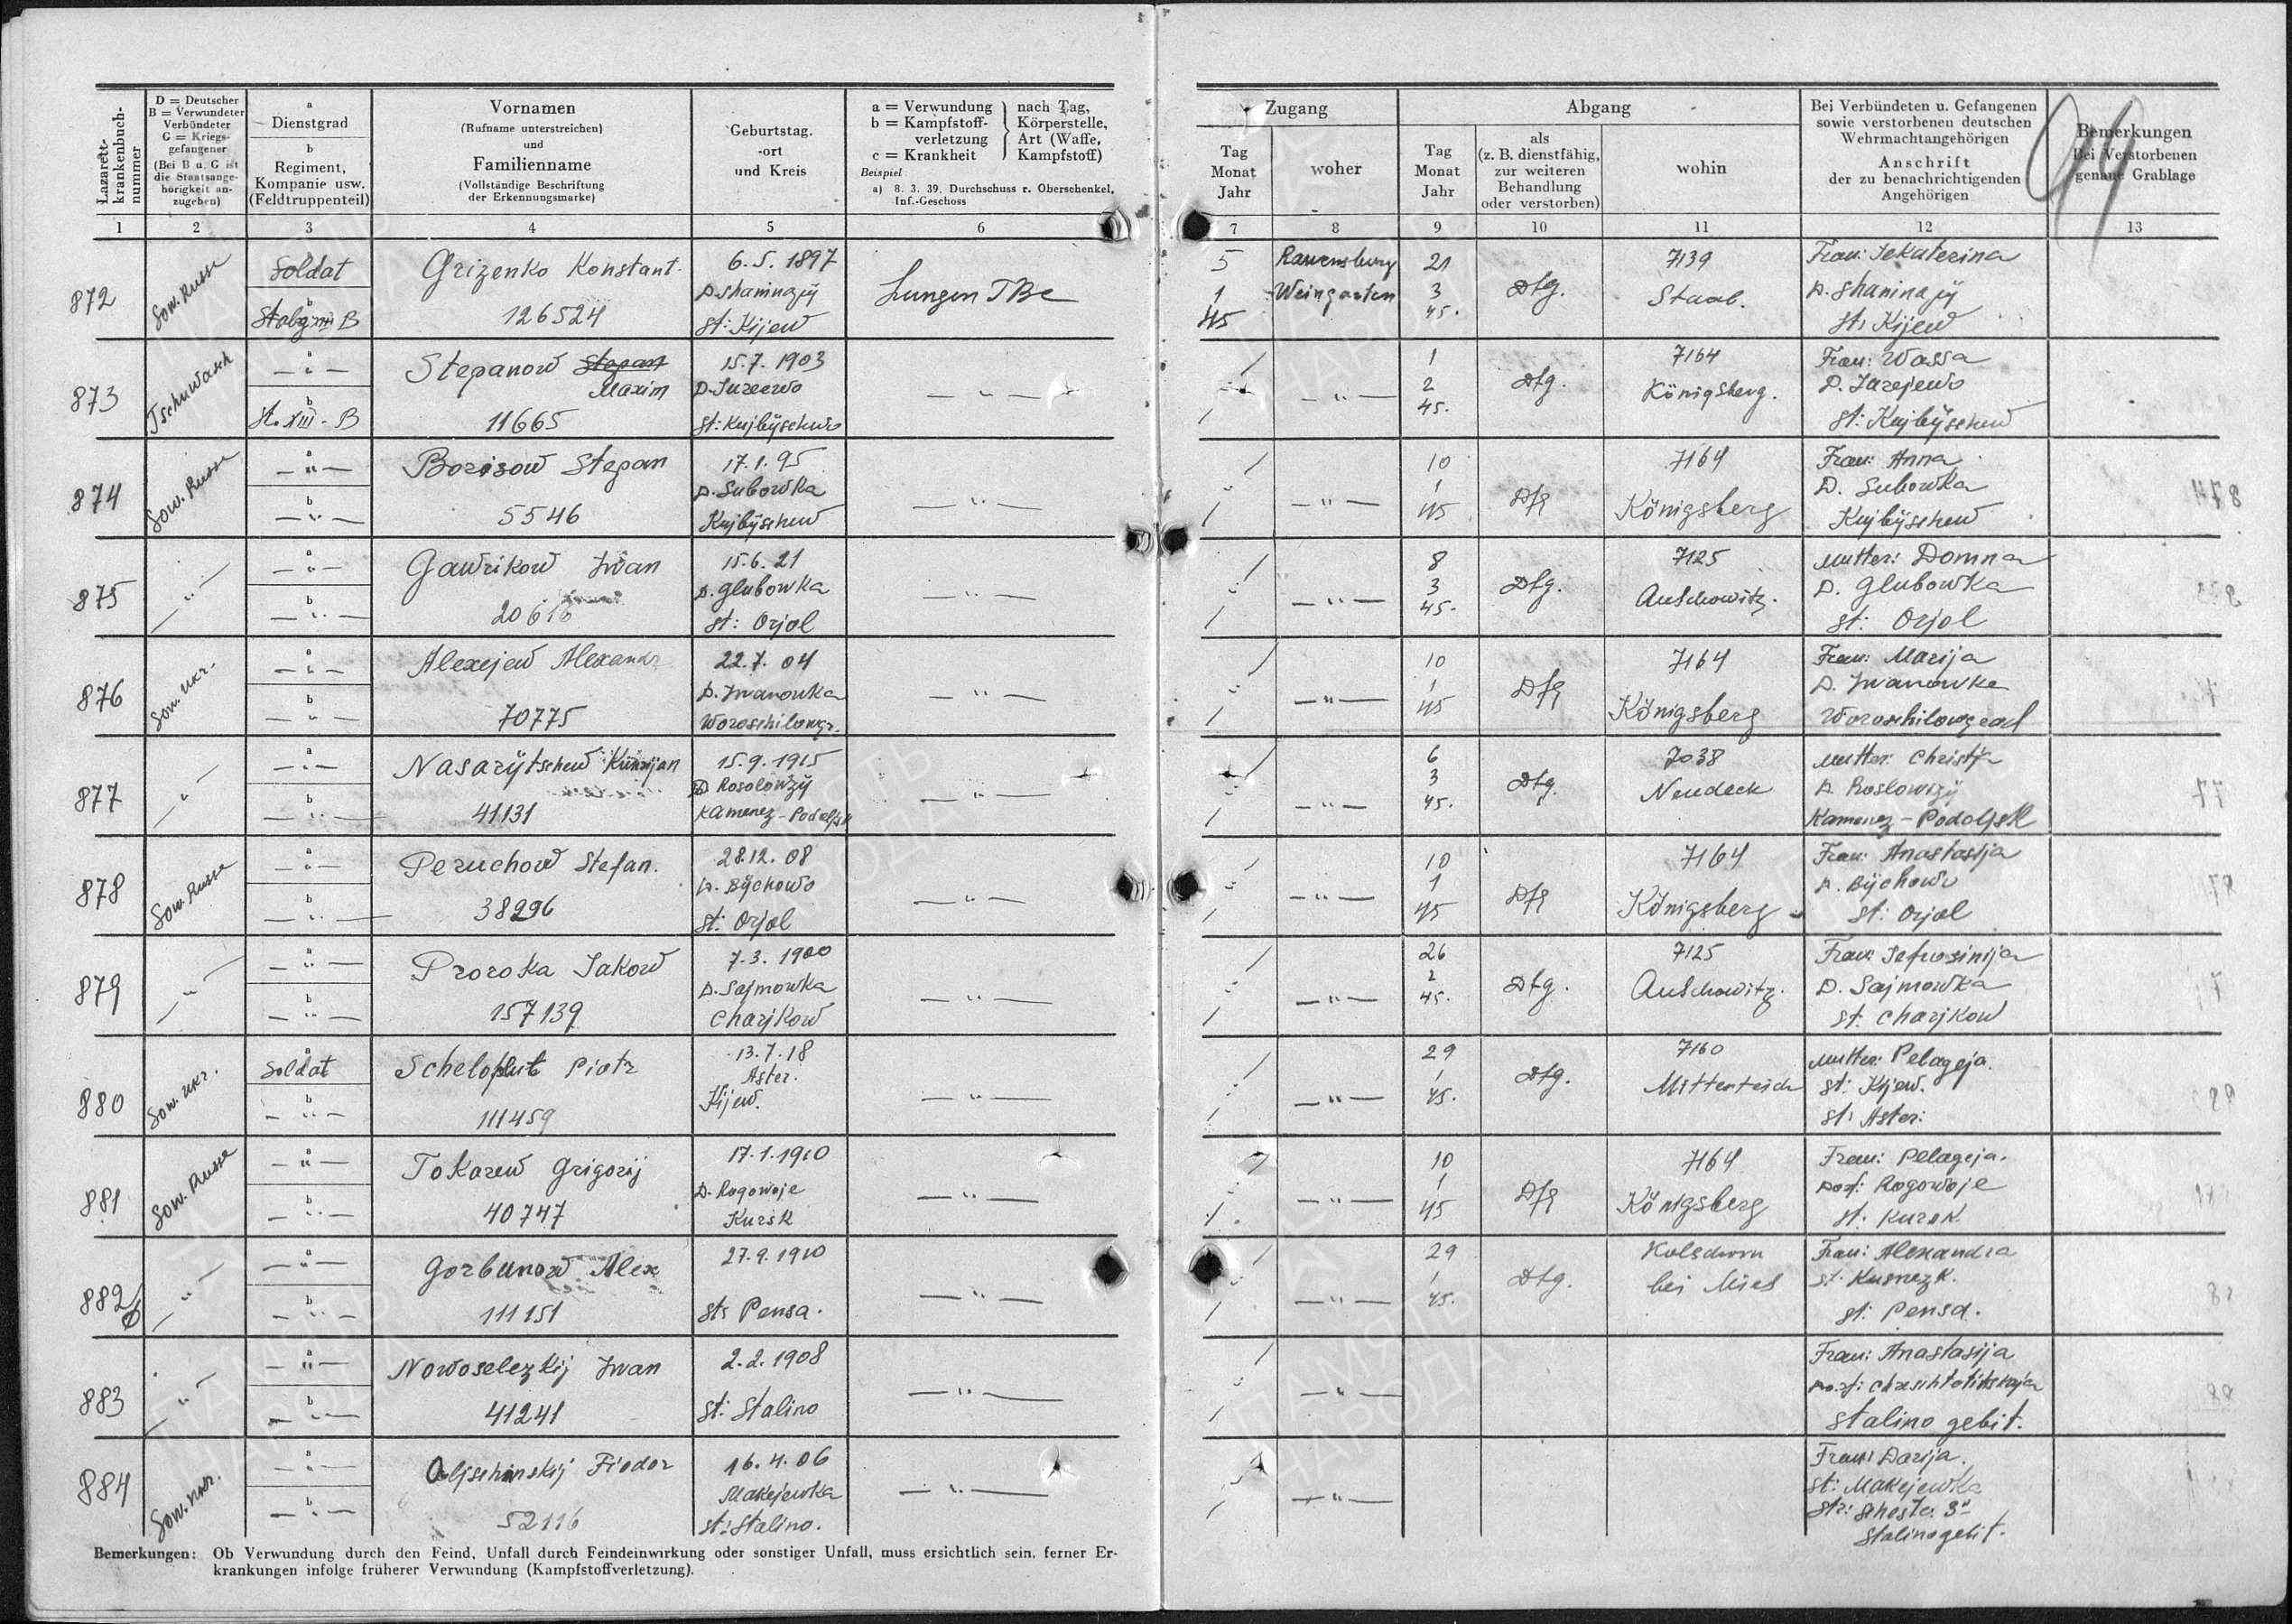 Lazarett-krankenbuch-nummer
D = Deutscher
B = Verwundeter
Verbündeter
G = Kriegs-
gefangener
(Bei B u. G ist
die Staatsange-
hörigkeit an-
zugeben)
a
Dienstgrad
b
Regiment,
Kompanie usw.
(Feldtruppenteil)
Vornamen
(Rufname unterstreichen)
und
Familienname
(Vollständige Beschriftung
der Erkennungsmarke)
Geburtstag.
-ort
und Kreis
a = Verwundung
b = Kampfstoff-
verletzung
c = Krankheit
nach Tag,
Körperstelle,
Art (Waffe,
Kampfstoff)
Beispiel
a) 8. 3. 39. Durchschuss r. Oberschenkel,
Inf.-Geschoss
Zugang
Tag
Monat
Jahr
woher
Abgang
Tag
Monat
Jahr
als
(z. B. dienstfähig,
zur weiteren
Behandlung
oder verstorben)
wohin
Bei Verbündeten u. Gefangenen
sowie verstorbenen deutschen
Wehrmachtangehörigen
Anschrift
der zu benachrichtigenden
Angehörigen
Bemerkungen
Bei Verstorbenen
genaue Grablage
1 2 3 4 5 6 7 8 9 10 11 12 13
872
Sow. Russe
Soldat
Grizenko Konstant.
126524
6. 5. 1897
D. Shaninajÿ
st: Kijew
Lungen TBc
5
1
45
Ravensburg
Weingarten
21
3
45.
Dfg.
7139
Staab.
Frau: Jekaterina
D. Shaninajÿ
st: Kijew
873
Tschuwasch
— " —
St. XIII - B
Stepanow Stepan
Maxim
11665
15. 7. 1903
st: Kujbÿschew
— " —
— " —
1
2
45.
Dfg.
7164
Königsberg.
Frau: Wassa
D. Jarejewo
st: Kujbÿschew
874
Sow. Russe
— " —
— " —
Borisow Stepan
5546
17. 1. 95
D. Subowka
Kujbÿschew
— " —
— " —
10
1
45
Dfg
7164
Königsberg
Frau: Anna
D. Subowka
Kujbÿschew
875
— " —
— " —
— " —
Gawrikow Iwan
20616
15. 6. 21
D. Glubowka
st: Orjol
— " —
— " —
8
3
45.
Dfg.
7125
Auschowitz.
Mutter: Domna
D. Glubowka
st: Orjol
876
Sow. Ukr.
— " —
— " —
Alexejew Alexandr
70775
22. 7. 04
D. Iwanowka
Woroschilowgr.
— " —
— " —
10
1
45
Dfg
7164
Königsberg
Frau: Marija
D. Iwanowka
Woroschilowgrad
877
— " —
— " —
— " —
Nasarÿtschew
41131
15. 9. 1915
D. Rosolowzÿ
Kamenez-Podoljsk
— " —
— " —
6
3
45.
Dfg.
7038
Neudeck
Mutter: Christja
D. Roslowizÿ
Kamenez-Podoljsk
878
Sow. Russe
— " —
— " —
Peruchow Stefan.
38296
28. 12. 08
D. Bÿchowo
st: Orjol
— " —
— " —
10
1
45
Dfg
7164
Königsberg
Frau: Anastasija
D. Bÿchowo
st: Orjol
879
— " —
— " —
— " —
Proroka Jakow
157139
7. 3. 1900
D. Sajmowka
Charjkow
— " —
— " —
26
2
45.
Dfg.
7125
Auschowitz.
Frau: Jefrosinija
D. Sajmowka
st: Charjkow
880
Sow. Ukr.
Soldat
— " —
Scheloput Piotr
111459
13. 7. 18
Aster.
Kijew.
— " —
— " —
29
1
45.
Dfg.
7160
Mitterteich
Mutter: Pelageja.
st: Kijew.
st: Aster:
881
Sow. Russe
— " —
— " —
Tokarew Grigorij
40747
17. 1. 1910
D. Rogowoje
Kursk
— " —
— " —
10
1
45
Dfg
7164
Königsberg
Frau: Pelageja.
Rogowoje
st: Kursk
882
— " —
— " —
— " —
Gorbunow Alex
111151
27. 9. 1910
st: Pensa.
— " —
— " —
29
1
45.
Dfg.
bei Mies
Frau: Alexandra
st: Kusnezk.
st: Pensa.
883
— " —
— " —
— " —
Nowoselezkij Iwan
41241
2. 2. 1908
st: Stalino
— " —
— " —
Frau: Anastasija
Stalino gebit.
884
Sow. Ukr.
— " —
— " —
Oljschinskij Fiodor
52116
16. 4. 06
Makejewka
st: Stalino.
— " —
— " —
Frau: Darija.
st: Makejewka
Stalino gebit.
Bemerkungen: Ob Verwundung durch den Feind, Unfall durch Feindeinwirkung oder sonstiger Unfall, muss ersichtlich sein, ferner Er-
krankungen infolge früherer Verwundung (Kampfstoffverletzung).